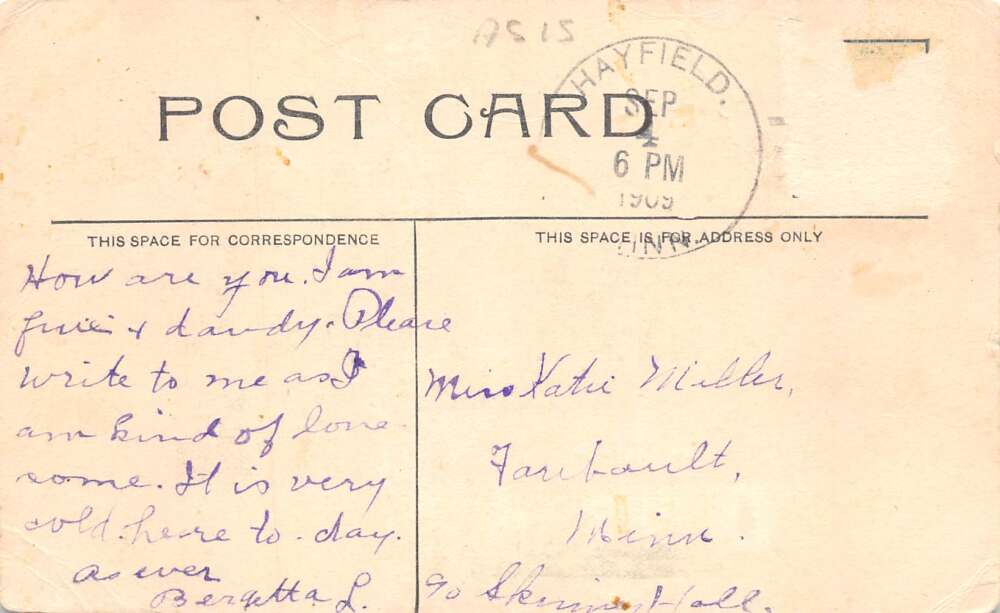 AS IS
HAYFIELD.
SEP
4
6 PM
1909
MINN.
POST CARD
THIS SPACE FOR CORRESPONDENCE
THIS SPACE IS FOR ADDRESS ONLY
How are you. I am
fine + dandy. Please
write to me as I
am kind of lone-
some. It is very
cold here to-day.
As ever
Bergetta L.
Miss Katie Miller,
Faribault,
Minn.
c/o Skinner Hall.